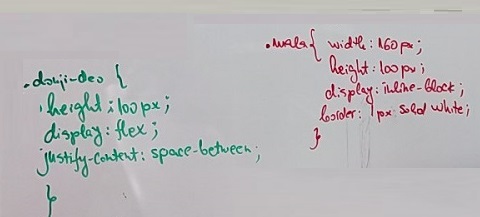 .donji-deo {
height: 100px;
display: flex;
justify-content: space-between;
}
.mala{ width: 160px;
height: 100px;
display: inline-block;
border: 1px solid white;
}